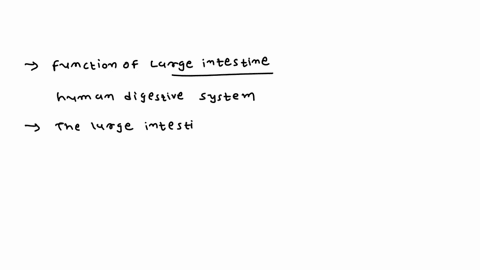 → Function of Large intestine
human digestive system
→ The large intesti